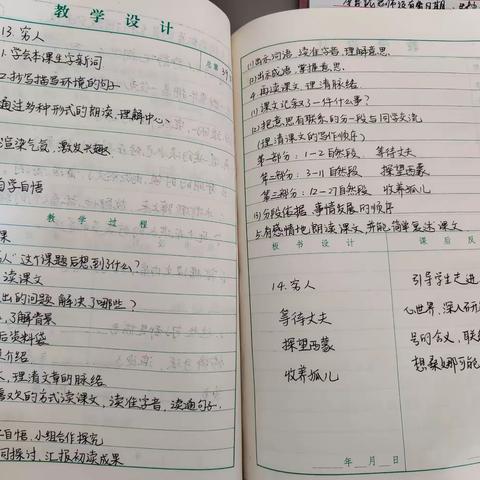 教学设计
13.穷人
1.学会本课生字新词
2.抄写描写环境的句子
通过多种形式的朗读,理解中心
渲染气氛,激发兴趣
自学自悟
教学过程
这个课题后想到了什么?
读课文
出的问题,解决了哪些?
,了解背景
后资料袋
介绍
,理清文章的脉络
喜欢的方式读课文,读准字音,读通句子.
自悟,小组合作探究
同探讨,汇报初读成果
(1)出示词语,读准字音,理解意思
(2)出示成语,掌握意思.
4.再读课文,理清脉络
(1)课文记叙了一件什么事?
(2)把意思有联系的分一段与同学交流
(理清课文的写作顺序)
第一部分:1-2自然段 等待丈夫
第二部分:3-11自然段 探望西蒙
第三部分:12-27自然段 收养孤儿
(3)分段依据:事情发展的顺序
5.有感情地朗读课文,并能简单复述课文
板书设计
课后反
14.穷人
等待丈夫
探望西蒙
收养孤儿
引导学生走进
心世界,深入研
号的含义,联
想桑娜可能
年 月 日